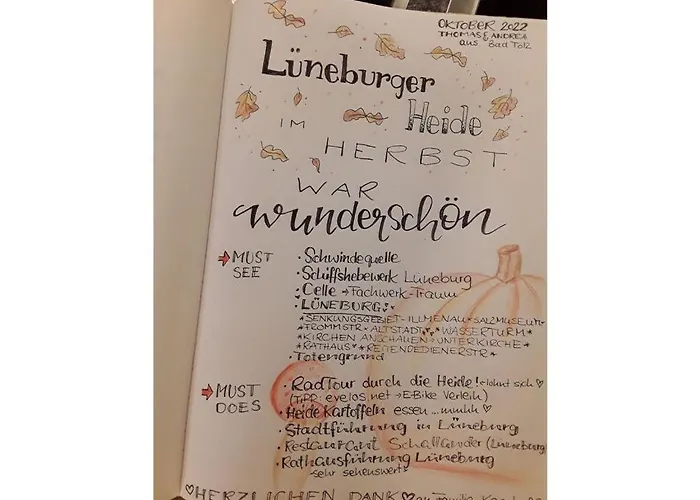 OKTOBER 2022
THOMAS & ANDREA
aus Bad Tölz
Lüneburger
Heide
IM
HERBST
WAR
wunderschön
→ MUST SEE
· Schwindequelle
· Schiffshebewerk Lüneburg
· Celle → Fachwerk-Traum
· LÜNEBURG:
* SENKUNGSGEBIET - ILLMENAU * SALZMUSEUM
* FROMMSTR * ALTSTADT * WASSERTURM *
* KIRCHEN ANSCHAUEN → UNTERKIRCHE *
* RATHAUS * REITENDEDIENERSTR *
· Totengrund
→ MUST DOES
· RadTour durch die Heide! - lohnt sich ♡
(TIPP: evelos.net → E-Bike Verleih)
· Heide Kartoffeln essen ... mmhh ♡
· Stadtführung in Lüneburg
· Restaurant Schallander (Lüneburg)
· Rathausführung Lüneburg
- sehr sehenswert
♡ HERZLICHEN DANK ♡ an Familie